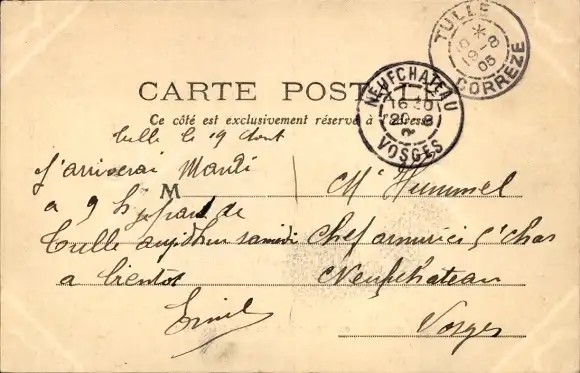 CARTE POSTALE
Ce côté est exclusivement réservé à l'adresse
TULLE
19 - 8 05
CORREZE
NEUFCHATEAU
16 30
20 8
VOSGES
Tulle le 19 Aout
J'arriverai Mardi
a 9 h je pars de
Tulle aujd'hui samedi
a bientot
Emile
M
Mr Hummel
Chef armurier 5e Chas
Neufchâteau
Vosges